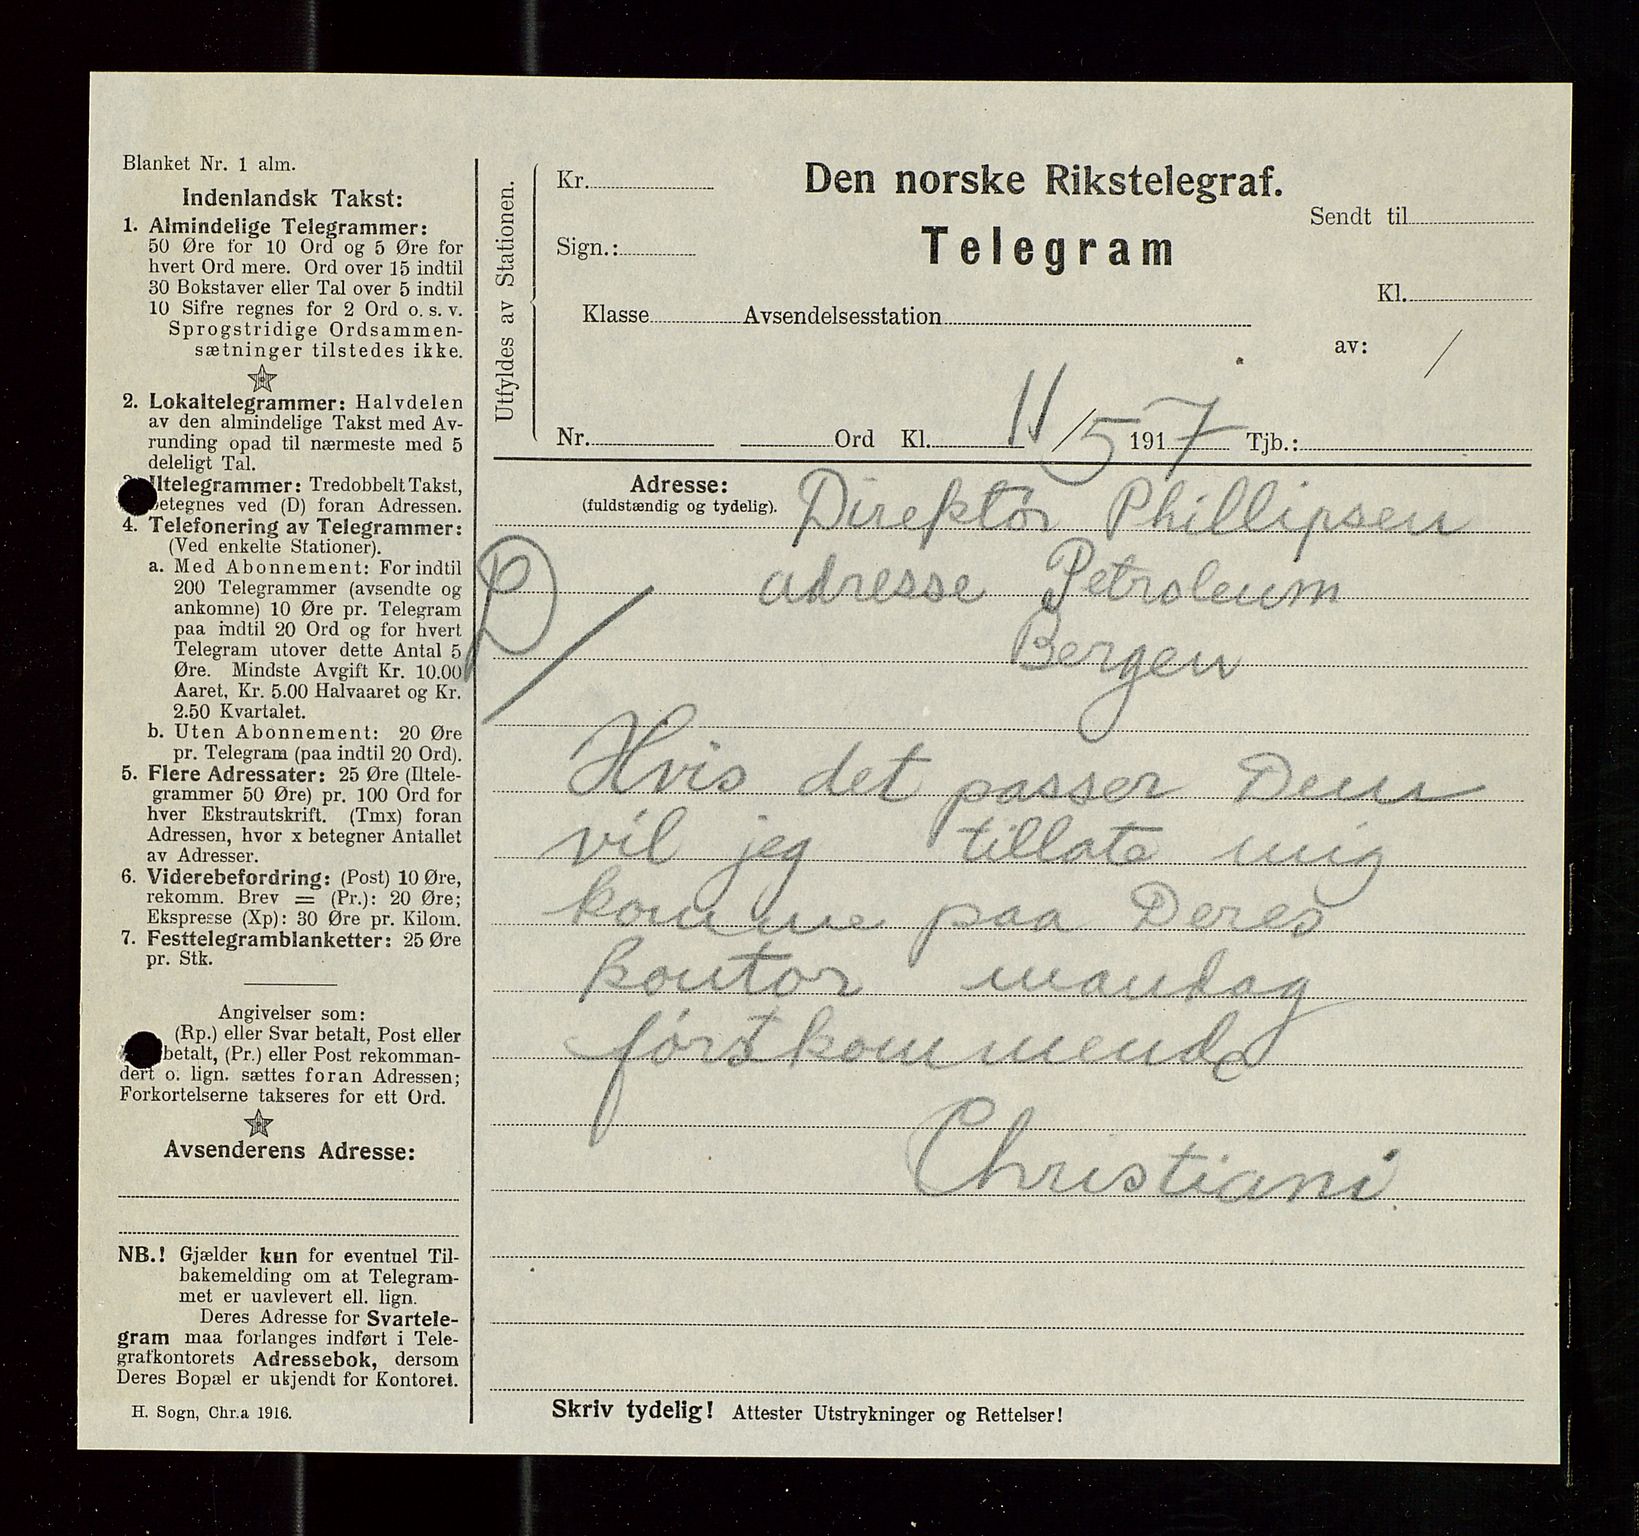 Blanket Nr. 1 alm.
Indenlandsk Takst:
1. Almindelige Telegrammer:
50 Øre for 10 Ord og 5 Øre for
hvert Ord mere. Ord over 15 indtil
30 Bokstaver eller Tal over 5 indtil
10 Sifre regnes for 2 Ord o. s. v.
Sprogstridige Ordsammen-
sætninger tilstedes ikke.
2. Lokaltelegrammer: Halvdelen
av den almindelige Takst med Av-
runding opad til nærmeste med 5
deleligt Tal.
Iltelegrammer: Tredobbelt Takst,
betegnes ved (D) foran Adressen.
4. Telefonering av Telegrammer:
(Ved enkelte Stationer).
a. Med Abonnement: For indtil
200 Telegrammer (avsendte og
ankomne) 10 Øre pr. Telegram
paa indtil 20 Ord og for hvert
Telegram utover dette Antal 5
Øre. Mindste Avgift Kr. 10.00
Aaret, Kr. 5.00 Halvaaret og Kr.
2.50 Kvartalet.
b. Uten Abonnement: 20 Øre
pr. Telegram (paa indtil 20 Ord).
5. Flere Adressater: 25 Øre (Iltele-
grammer 50 Øre) pr. 100 Ord for
hver Ekstrautskrift. (Tmx) foran
Adressen, hvor x betegner Antallet
av Adresser.
6. Viderebefordring: (Post) 10 Øre,
rekomm. Brev = (Pr.): 20 Øre;
Ekspresse (Xp): 30 Øre pr. Kilom.
7. Festtelegramblanketter: 25 Øre
pr. Stk.
Angivelser som:
(Rp.) eller Svar betalt, Post eller
betalt, (Pr.) eller Post rekomman-
dert o. lign. sættes foran Adressen;
Forkortelserne takseres for ett Ord.
Avsenderens Adresse:
NB.! Gjælder kun for eventuel Til-
bakemelding om at Telegram-
met er uavlevert ell. lign.
Deres Adresse for Svartele-
gram maa forlanges indført i Tele-
grafkontorets Adressebok, dersom
Deres Bopæl er ukjendt for Kontoret.
H. Sogn, Chr.a 1916.
Utfyldes av Stationen.
Kr.
Sign.:
Den norske Rikstelegraf.
Telegram
Sendt til
Kl.
Klasse Avsendelsesstation
av: /
Nr. Ord Kl. 11/5 1917 Tjb.:
Adresse:
(fuldstændig og tydelig).
Direktör Phillipsen
adresse Petroleum
Bergen
Hvis det passer Dem
vil jeg tillate mig
komme paa Deres
kontor mandag
förstkommende
Christiani
Skriv tydelig! Attester Utstrykninger og Rettelser!